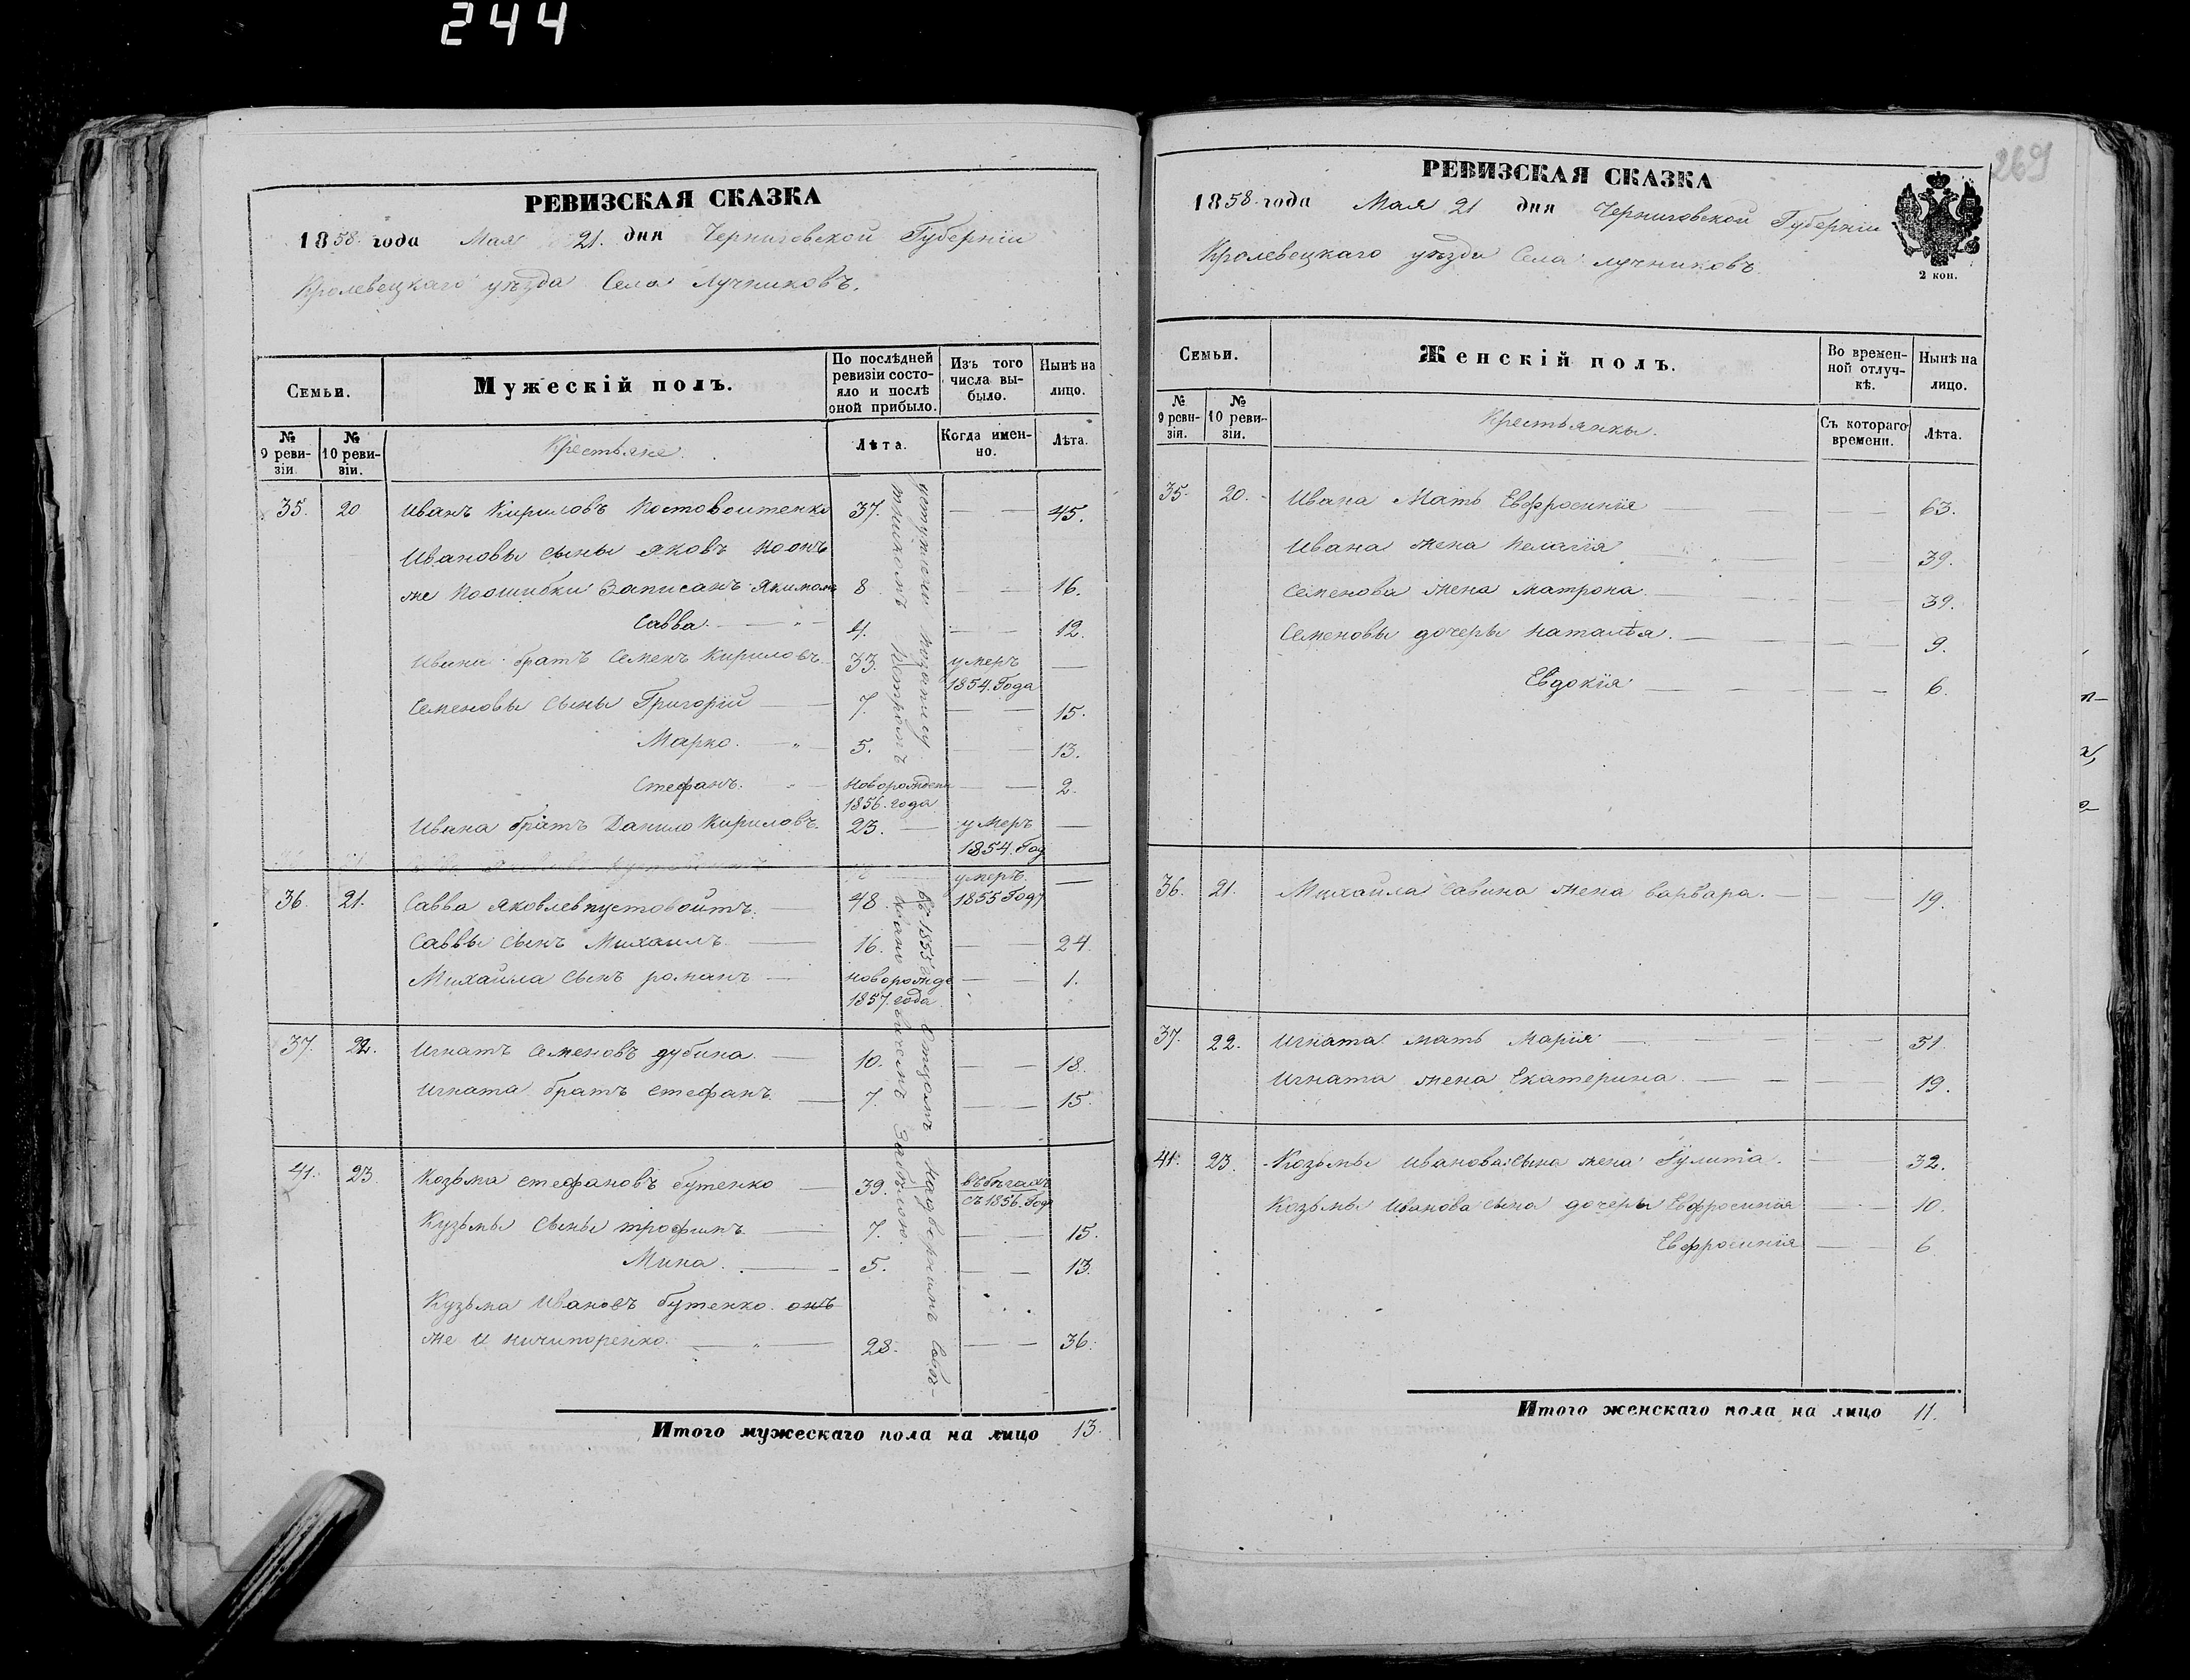 244
РЕВИЗСКАЯ СКАЗКА
1858 года Мая 21. дня Черниговской Губерніи
Кролевецкаго уѣзда Села Лучниковъ.
Семьи.
Мужескій полъ.
По послѣдней ревизіи состояло и послѣ оной прибыло.
Изъ того числа выбыло.
Нынѣ на лицо.
№ 9 ревизіи
№ 10 ревизіи.
Крестьяне.
Лѣта.
Когда именно.
Лѣта.
35. 20 Иванъ Кириловъ Костовоитенко 37. — — 45.
Ивановы сыны Яковъ
же поошибки Записанъ 8 — — 16.
Савва. — " — 4. — — 12.
Ивана братъ Семенъ Кириловъ 33. умеръ —
1854. Года
Семеновы Сыны Григорій — 7. — — 15.
Марко. — " — 5. — — 13.
Стефанъ. " — новорожден — — 2.
1856. года
Ивана братъ Данило Кириловъ. 23. — умеръ —
1854. Год
умеръ —
36. 21. Савва Яковлев пустовойтъ. — 48 1855 Году
Саввы сынъ Михаилъ — 16. — — 24.
Михайла Сынъ романъ — новорожде — — 1.
1857. года
37. 22. Игнатъ Семеновъ дубина. — 10. — — 18.
Игната братъ Стефанъ. — 7. — — 15.
41. 23 Козьма стефановъ бутенко — 39. въбѣгахъ
съ 1856. Года
Кузьмы Сыны трофимъ. — 7. — — 15.
Мина. — 5. — — 13.
Кузьма Ивановъ бутенко. онъ
же и ничипоренко. — " — 28. — — 36.
Итого мужескаго пола на лицо 13.
269
РЕВИЗСКАЯ СКАЗКА
1858 года Мая 21 дня Черниговской Губерніи
Кролевецкаго уѣзда Села Лучниковъ
2 коп.
Семьи.
Женскій полъ.
Во временной отлучкѣ.
Нынѣ на лицо.
№ 9 ревизія.
№ 10 ревизіи.
Крестьянки.
Съ котораго времени.
Лѣта.
35. 20. Ивана Мать Евфросинія — — — 63.
Ивана жена Пелагія — — 39.
Семенова жена матрона. — — — 39.
Семеновы дочеры наталія. — — — 9.
Евдокія — — — 6.
36. 21. Михайла Савина жена варвара. — — — 19.
37. 22. Игната мать Марія — — — 51
Игната жена Екатерина. — — — 19.
41. 23. Козьмы Иванова сына жена Гулита. — — 32.
Козьмы Иванова сына дочеры Евфросинія — — 10.
Евфросинія — — 6
Итого женскаго пола на лицо 11.